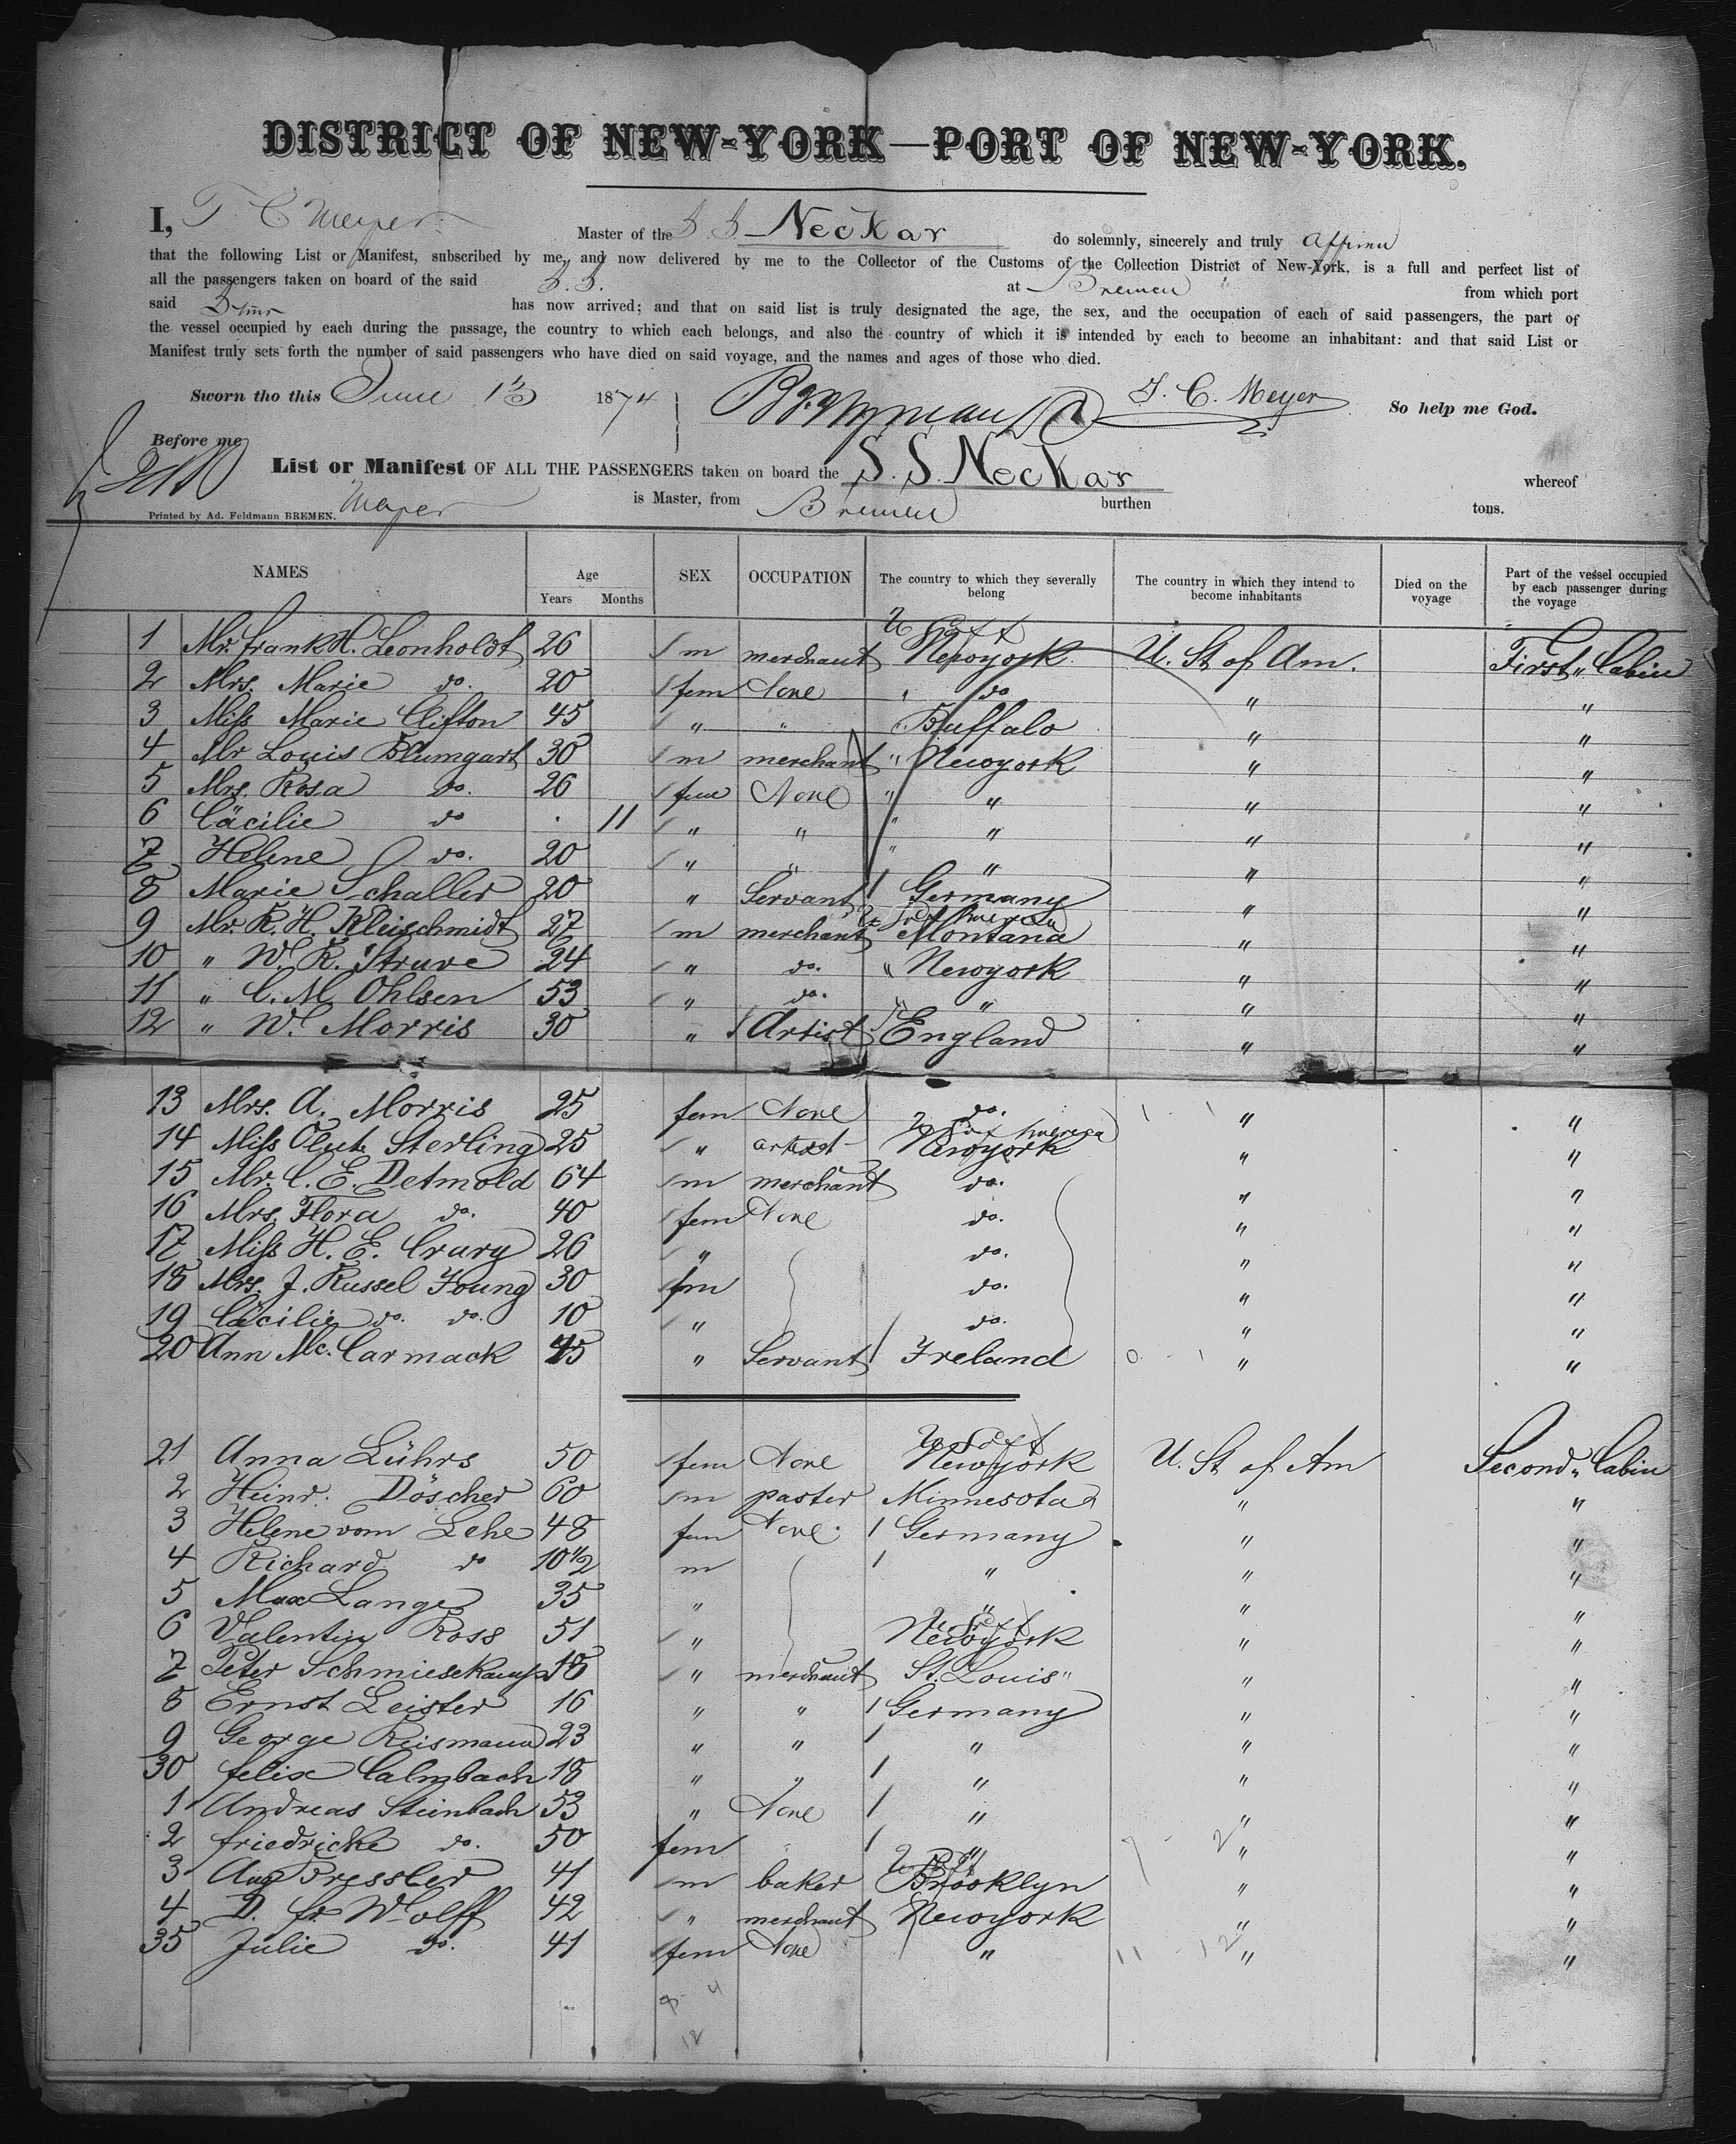 DISTRICT OF NEW-YORK—PORT OF NEW-YORK.
I, T C Meyer Master of the S. S. Neckar do solemnly, sincerely and truly affirm
that the following List or Manifest, subscribed by me, and now delivered by me to the Collector of the Customs of the Collection District of New-York, is a full and perfect list of
all the passengers taken on board of the said S. S. at Bremen from which port
said Stmr has now arrived; and that on said list is truly designated the age, the sex, and the occupation of each of said passengers, the part of
the vessel occupied by each during the passage, the country to which each belongs, and also the country of which it is intended by each to become an inhabitant: and that said List or
Manifest truly sets forth the number of said passengers who have died on said voyage, and the names and ages of those who died.
Sworn tho this June 13 1874 T. C. Meyer So help me God.
Before me
List or Manifest OF ALL THE PASSENGERS taken on board the S. S. Neckar whereof
Meyer is Master, from Bremen burthen tons.
Printed by Ad. Feldmann BREMEN.
NAMES Age Years Months SEX OCCUPATION The country to which they severally belong The country in which they intend to become inhabitants Died on the voyage Part of the vessel occupied by each passenger during the voyage
1 Mr. Frank H. Leonholdt 26 m merchant Newyork U. St of Am. First „ Cabin
2 Mrs. Marie do. 20 fem None " do " "
3 Miss Marie Clifton 45 " " " Buffalo " "
4 Mr Louis Blumgart 30 m merchant " Newyork " "
5 Mrs. Rosa do. 26 fem None " " " "
6 Cäcilie do 11 " " " " " "
7 Helene do. 20 " " " " " "
8 Marie Schaller 20 " Servant Germany " "
9 Mr. R. H. Kleischmidt 27 m merchant Montana " "
10 " W. R. Struve 24 " do. " Newyork " "
11 " C. M. Ohlsen 53 " do. " " "
12 " W. Morris 30 " Artist England " "
13 Mrs. A. Morris 25 fem None do. " "
14 Miss Sterling 25 " artist Newyork " "
15 Mr. C. E. Detmold 64 m merchant do. " "
16 Mrs. Flora do. 40 fem None do. " "
17 Miss H. E. Crary 26 " do. " "
18 Mrs. J. Russel Young 30 fem do. " "
19 Cäcilie do. do. 10 " do. " "
20 Ann Mc. Carmack 45 " Servant Ireland " "
21 Anna Lührs 50 fem None Newyork U. St of Am Second „ Cabin
2 Heinr. Döscher 60 m paster Minnesota " "
3 Helene vom Lehe 48 fem None. Germany " "
4 Richard do 10 1/2 m " " "
5 Max Lange 35 " " " "
6 Valentin Ross 51 " Newyork " "
7 Peter Schmiesekamp 18 " merchant St. Louis " "
8 Ernst Leister 16 " " Germany " "
9 George Reismann 23 " " " " "
30 Felix Calmbach 18 " " " " "
1 Andreas Steinbach 53 " None " " "
2 Friedricke do. 50 fem " " " "
3 Aug Bressler 41 m baker Brooklyn " "
4 D. Fr. Wolff 42 " merchant Newyork " "
35 Julie do. 41 fem None " " "